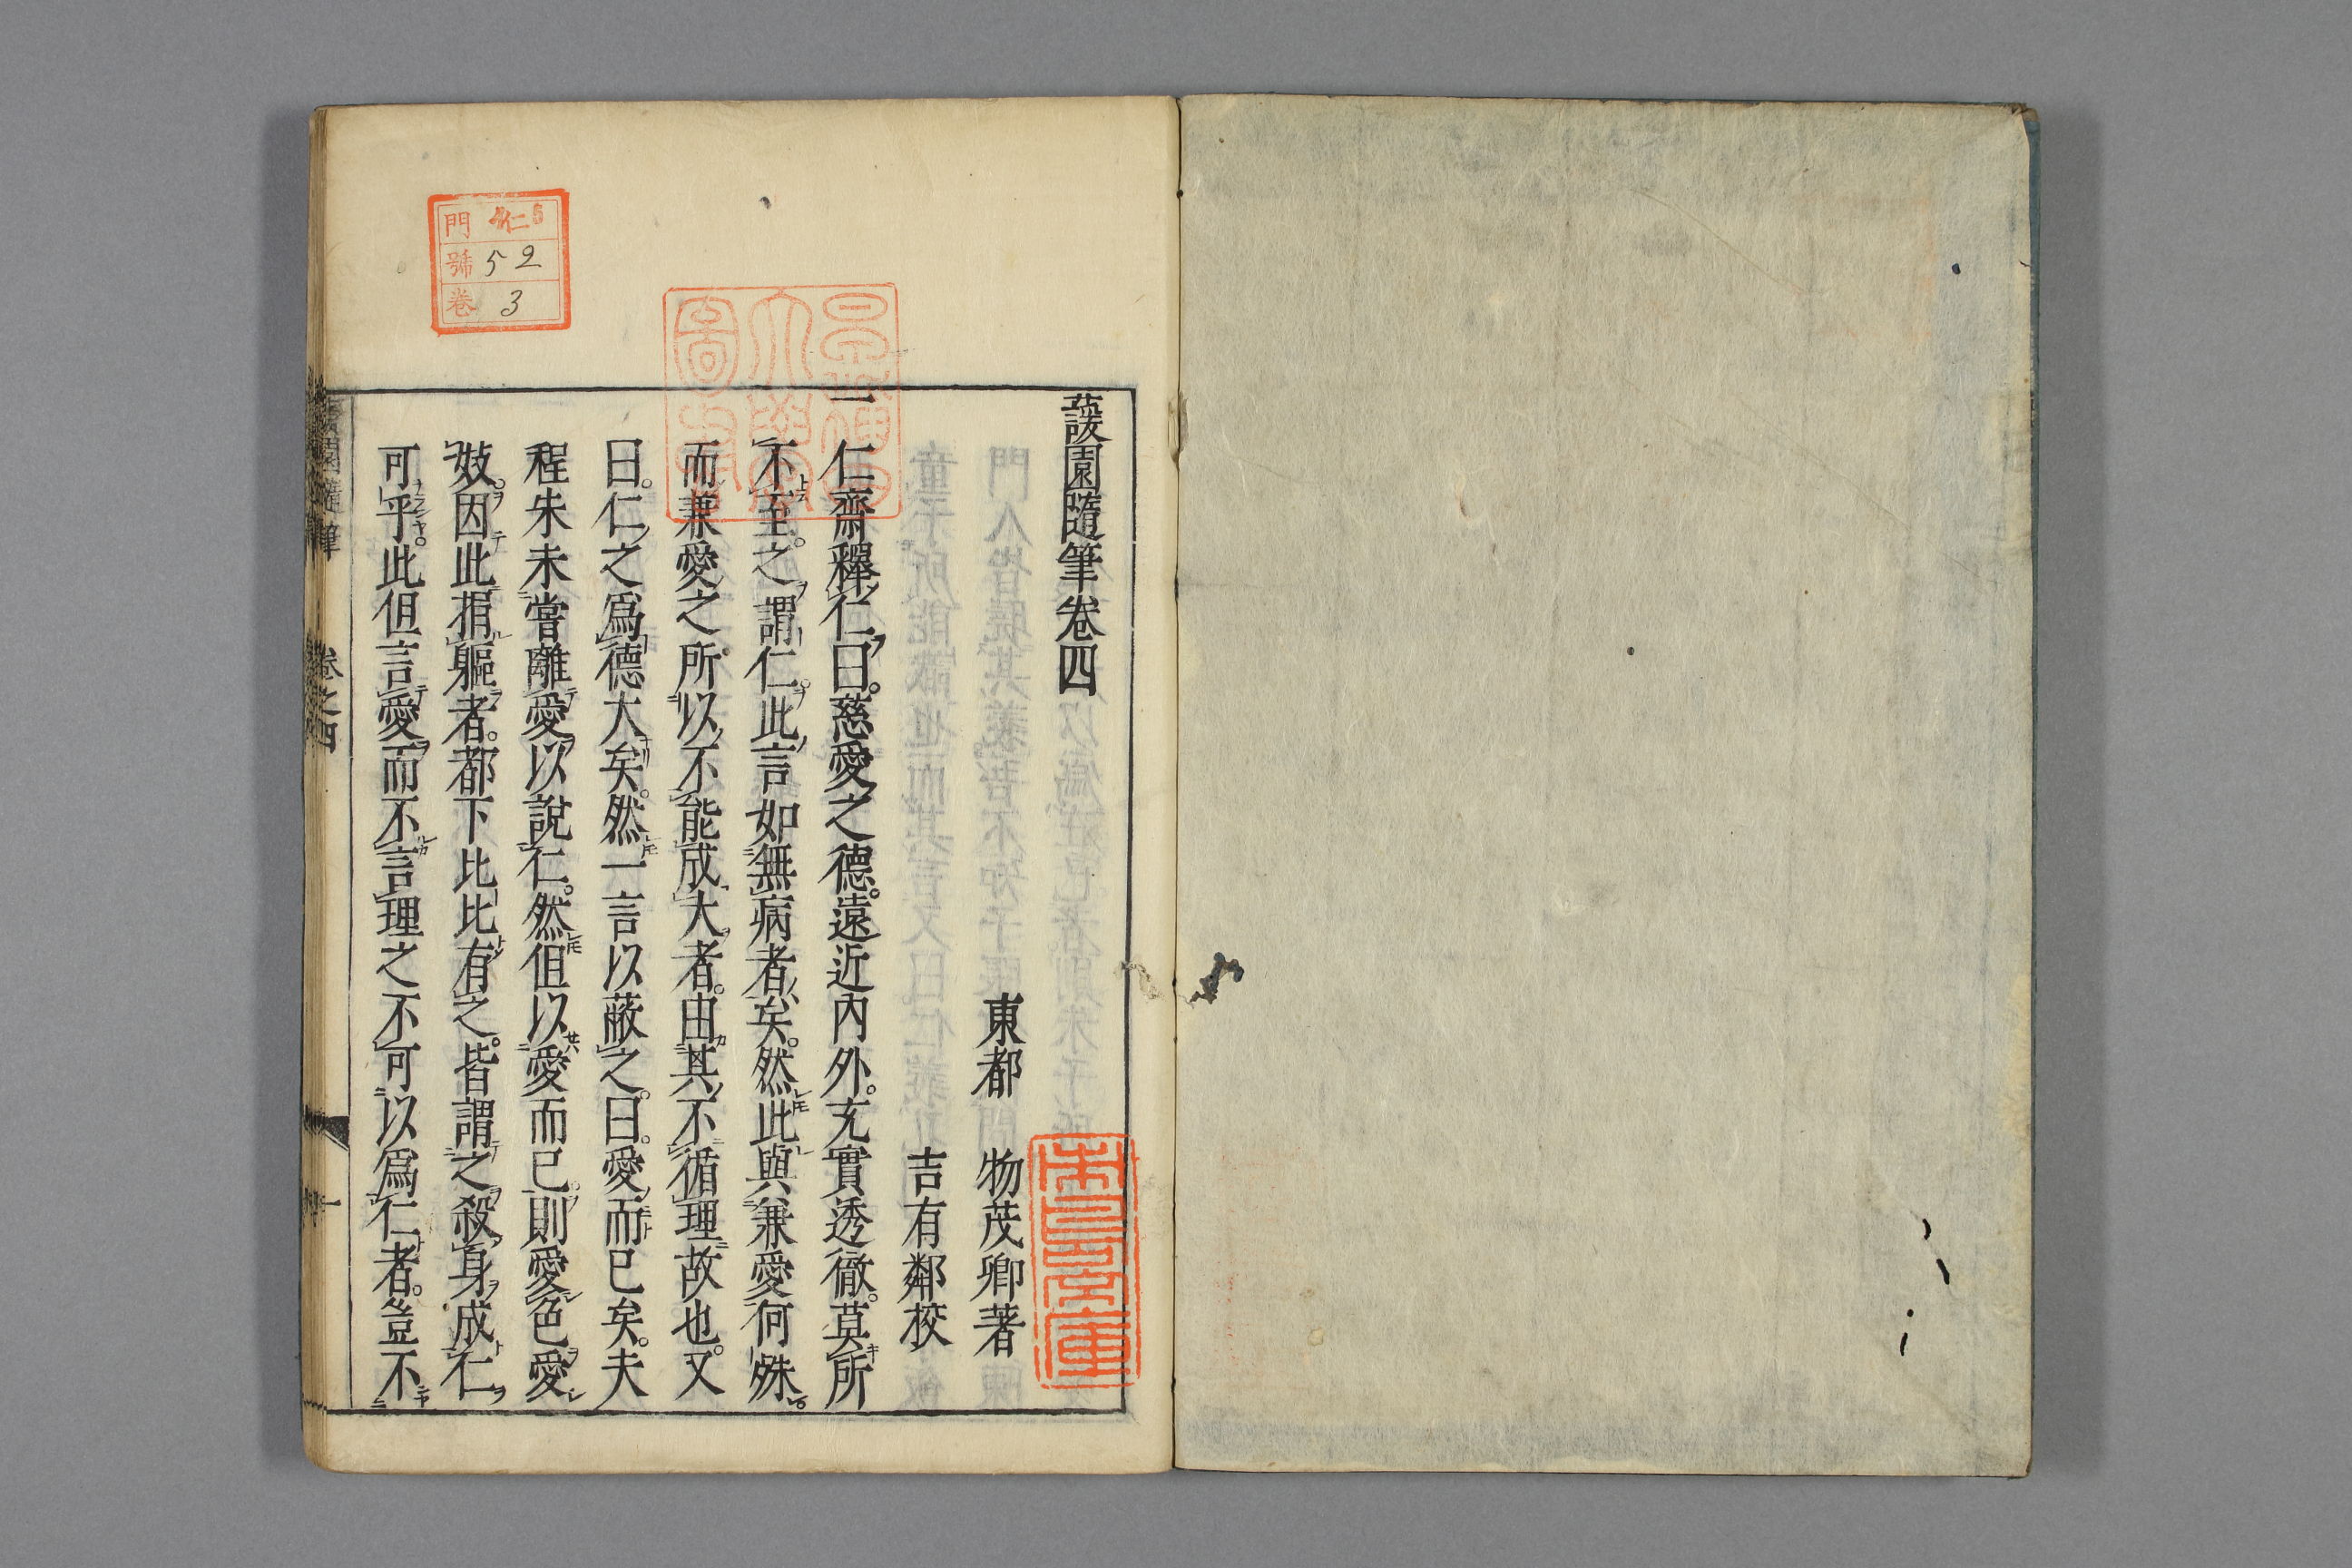 蘐園隨筆卷四
東都 物茂卿著
吉有鄰校
一
仁齋釋仁曰。慈愛之德。遠近內外。充實透徹。莫所
不至。之謂仁。此言如無病者矣。然此與兼愛何殊。
而兼愛之所以不能成大者。由其不循理故也。又
曰。仁之爲德大矣。然一言以蔽之。曰。愛而已矣。夫
程朱未嘗離愛以說仁。然但以愛而已。則愛色愛
妓。因此捐軀者。都下比比有之。皆謂之殺身成仁
可乎。此但言愛而不言理之不可以爲仁者。豈不
卷之四
一
門 仁5
號 52
卷 3